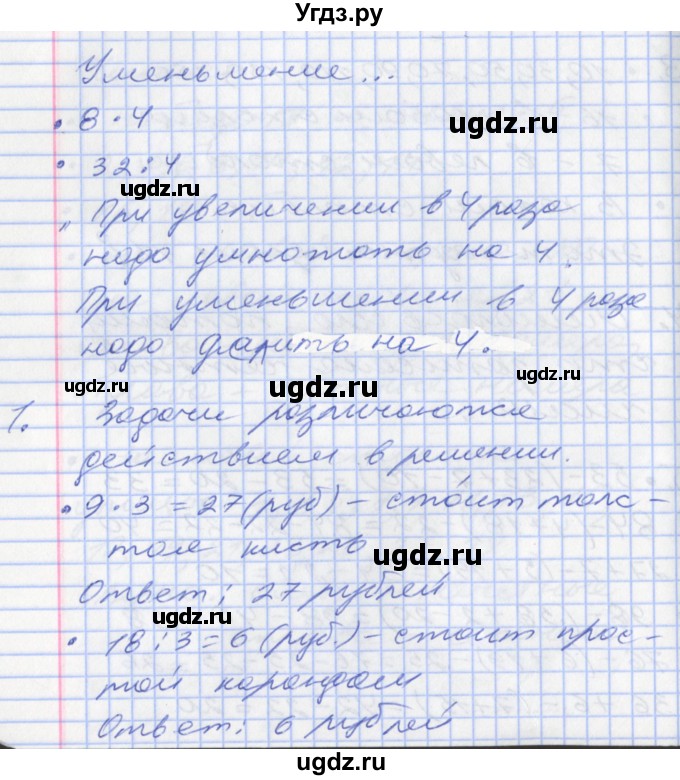 Угдз.ру
Уменьшение...
• 8 · 4
ugdz.ru
• 32 : 4
ugdz.ru
" При увеличении в 4 раза
ugdz.ru
надо умножать на 4.
При уменьшении в 4 раза
надо делить на 4.
ugdz.ru
ugdz.ru
ugdz.ru
1. Задачи различаются
действием в решении.
• 9 · 3 = 27 (руб) – сто́ит толс-
тая кисть
ugdz.ru
Ответ: 27 рублей
ugdz.ru
• 18 : 3 = 6 (руб.) – стоит прос-
той карандаш
Ответ: 6 рублей
ugdz.ru
ugdz.ru